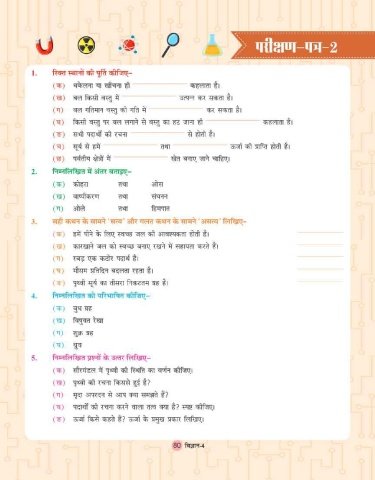 परीक्षण-पत्र-2
1. रिक्त स्थानों की पूर्ति कीजिए-
(क) धकेलना या खींचना ही कहलाता है।
(ख) बल किसी वस्तु में उत्पन्न कर सकता है।
(ग) बल गतिमान वस्तु की गति में कर सकता है।
(घ) किसी वस्तु पर बल लगाने से वस्तु का हट जाना ही कहलाता है।
(ङ) सभी पदार्थों की रचना से होती है।
(च) सूर्य से हमें तथा ऊर्जा की प्राप्ति होती है।
(छ) पर्वतीय क्षेत्रों में खेत बनाए जाने चाहिए।
2. निम्नलिखित में अंतर बताइए-
(क) कोहरा तथा ओस
(ख) वाष्पीकरण तथा संघनन
(ग) ओले तथा हिमपात
3. सही कथन के सामने 'सत्य' और गलत कथन के सामने 'असत्य' लिखिए-
(क) हमें पीने के लिए स्वच्छ जल की आवश्यकता होती है।
(ख) कारखाने जल को स्वच्छ बनाए रखने में सहायता करते हैं।
(ग) रबड़ एक कठोर पदार्थ है।
(घ) मौसम प्रतिदिन बदलता रहता है।
(ङ) पृथ्वी सूर्य का तीसरा निकटतम ग्रह है।
4. निम्नलिखित को परिभाषित कीजिए-
(क) बुध ग्रह
(ख) विषुवत रेखा
(ग) शुक्र ग्रह
(घ) ध्रुव
5. निम्नलिखित प्रश्नों के उत्तर लिखिए-
(क) सौरमंडल में पृथ्वी की स्थिति का वर्णन कीजिए।
(ख) पृथ्वी की रचना किससे हुई है?
(ग) मृदा अपरदन से आप क्या समझते हैं?
(घ) पदार्थों की रचना करने वाला तत्व क्या है? स्पष्ट कीजिए।
(ङ) ऊर्जा किसे कहते हैं? ऊर्जा के प्रमुख प्रकार लिखिए।
80 विज्ञान-4